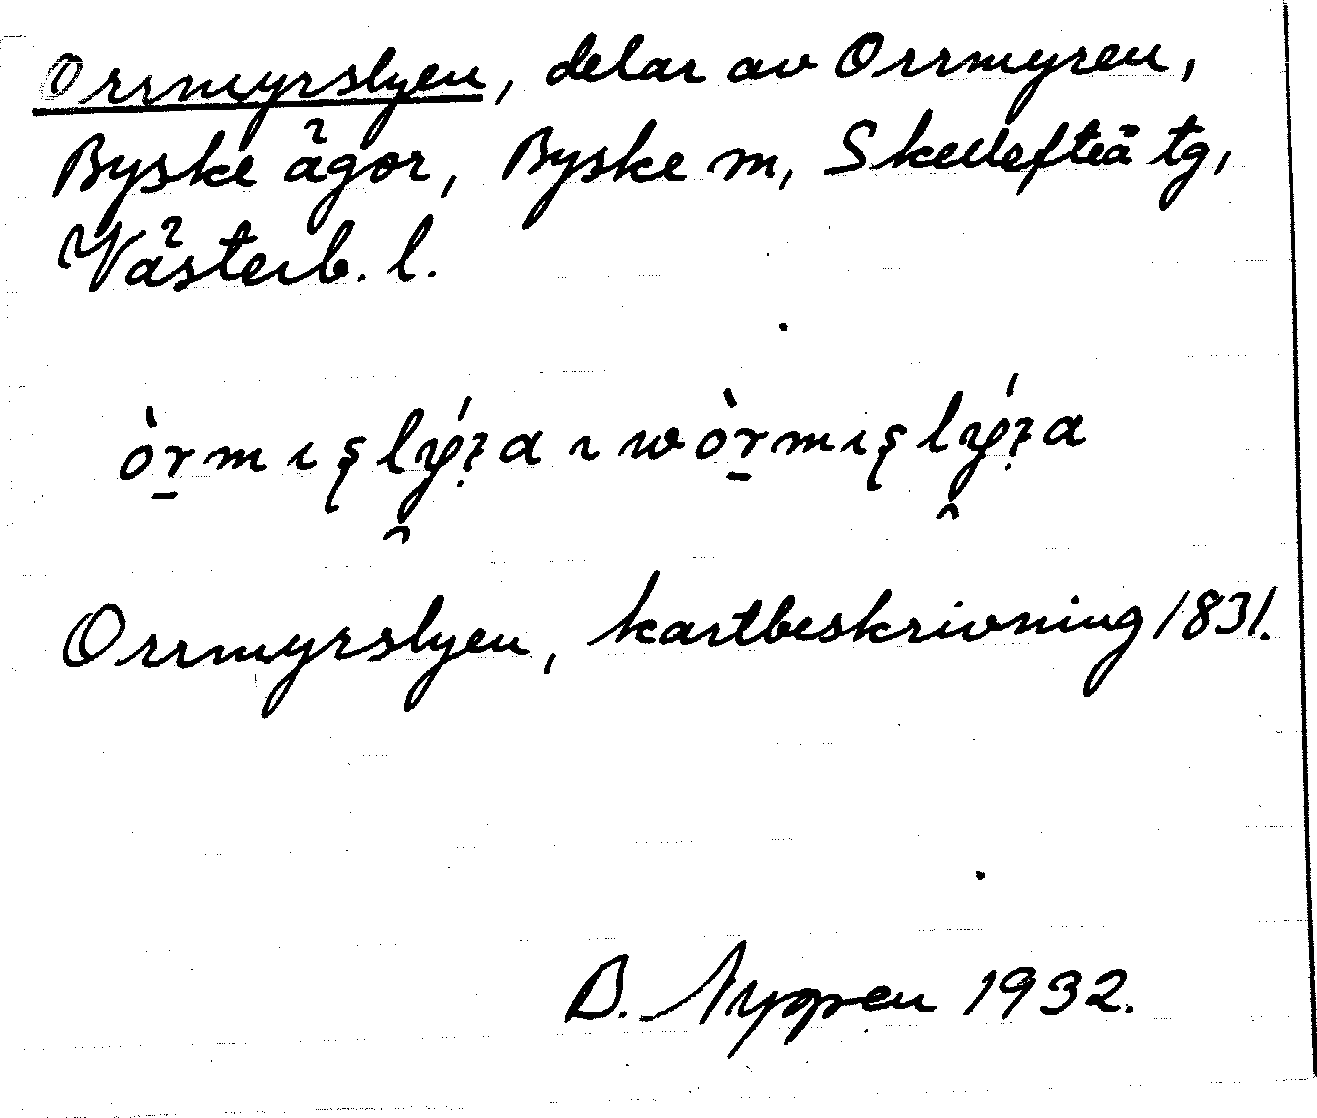 Orrmyrslyen, delar av Orrmyren,
Byske ägor, Byske m, Skellefteå tg,
Västerb. l.
Orrmyrslyen, kartbeskrivning 1831.
B. Nygren 1932.